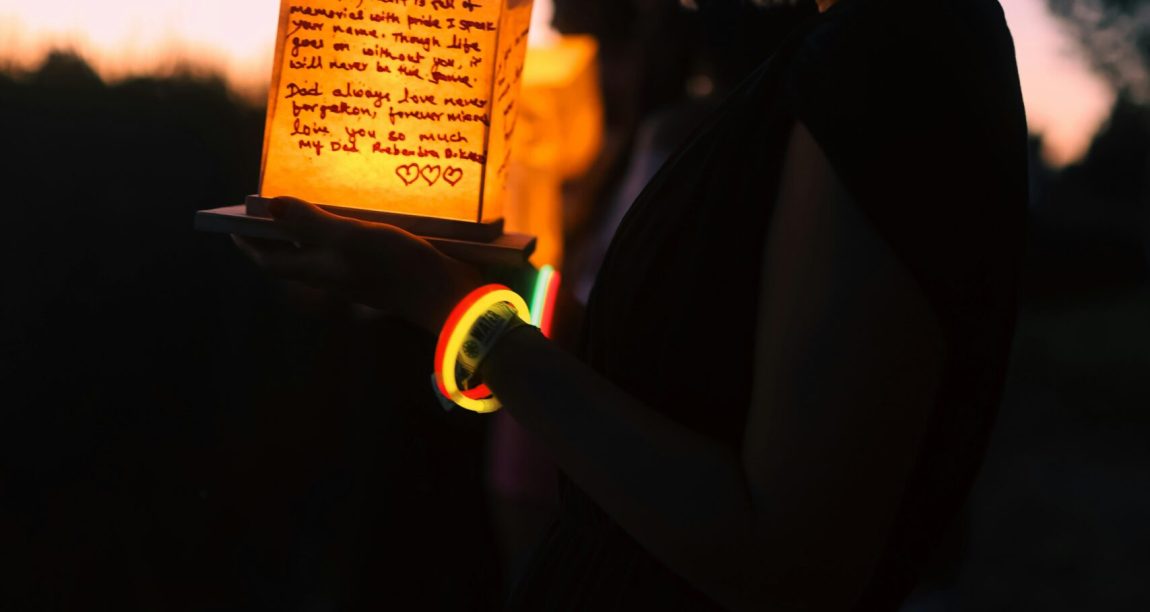 is full of
memories with pride I speak
your name. Though life
goes on without you, it
will never be the same.
Dad always love never
forgotton, forever missed
love you so much
My Dad